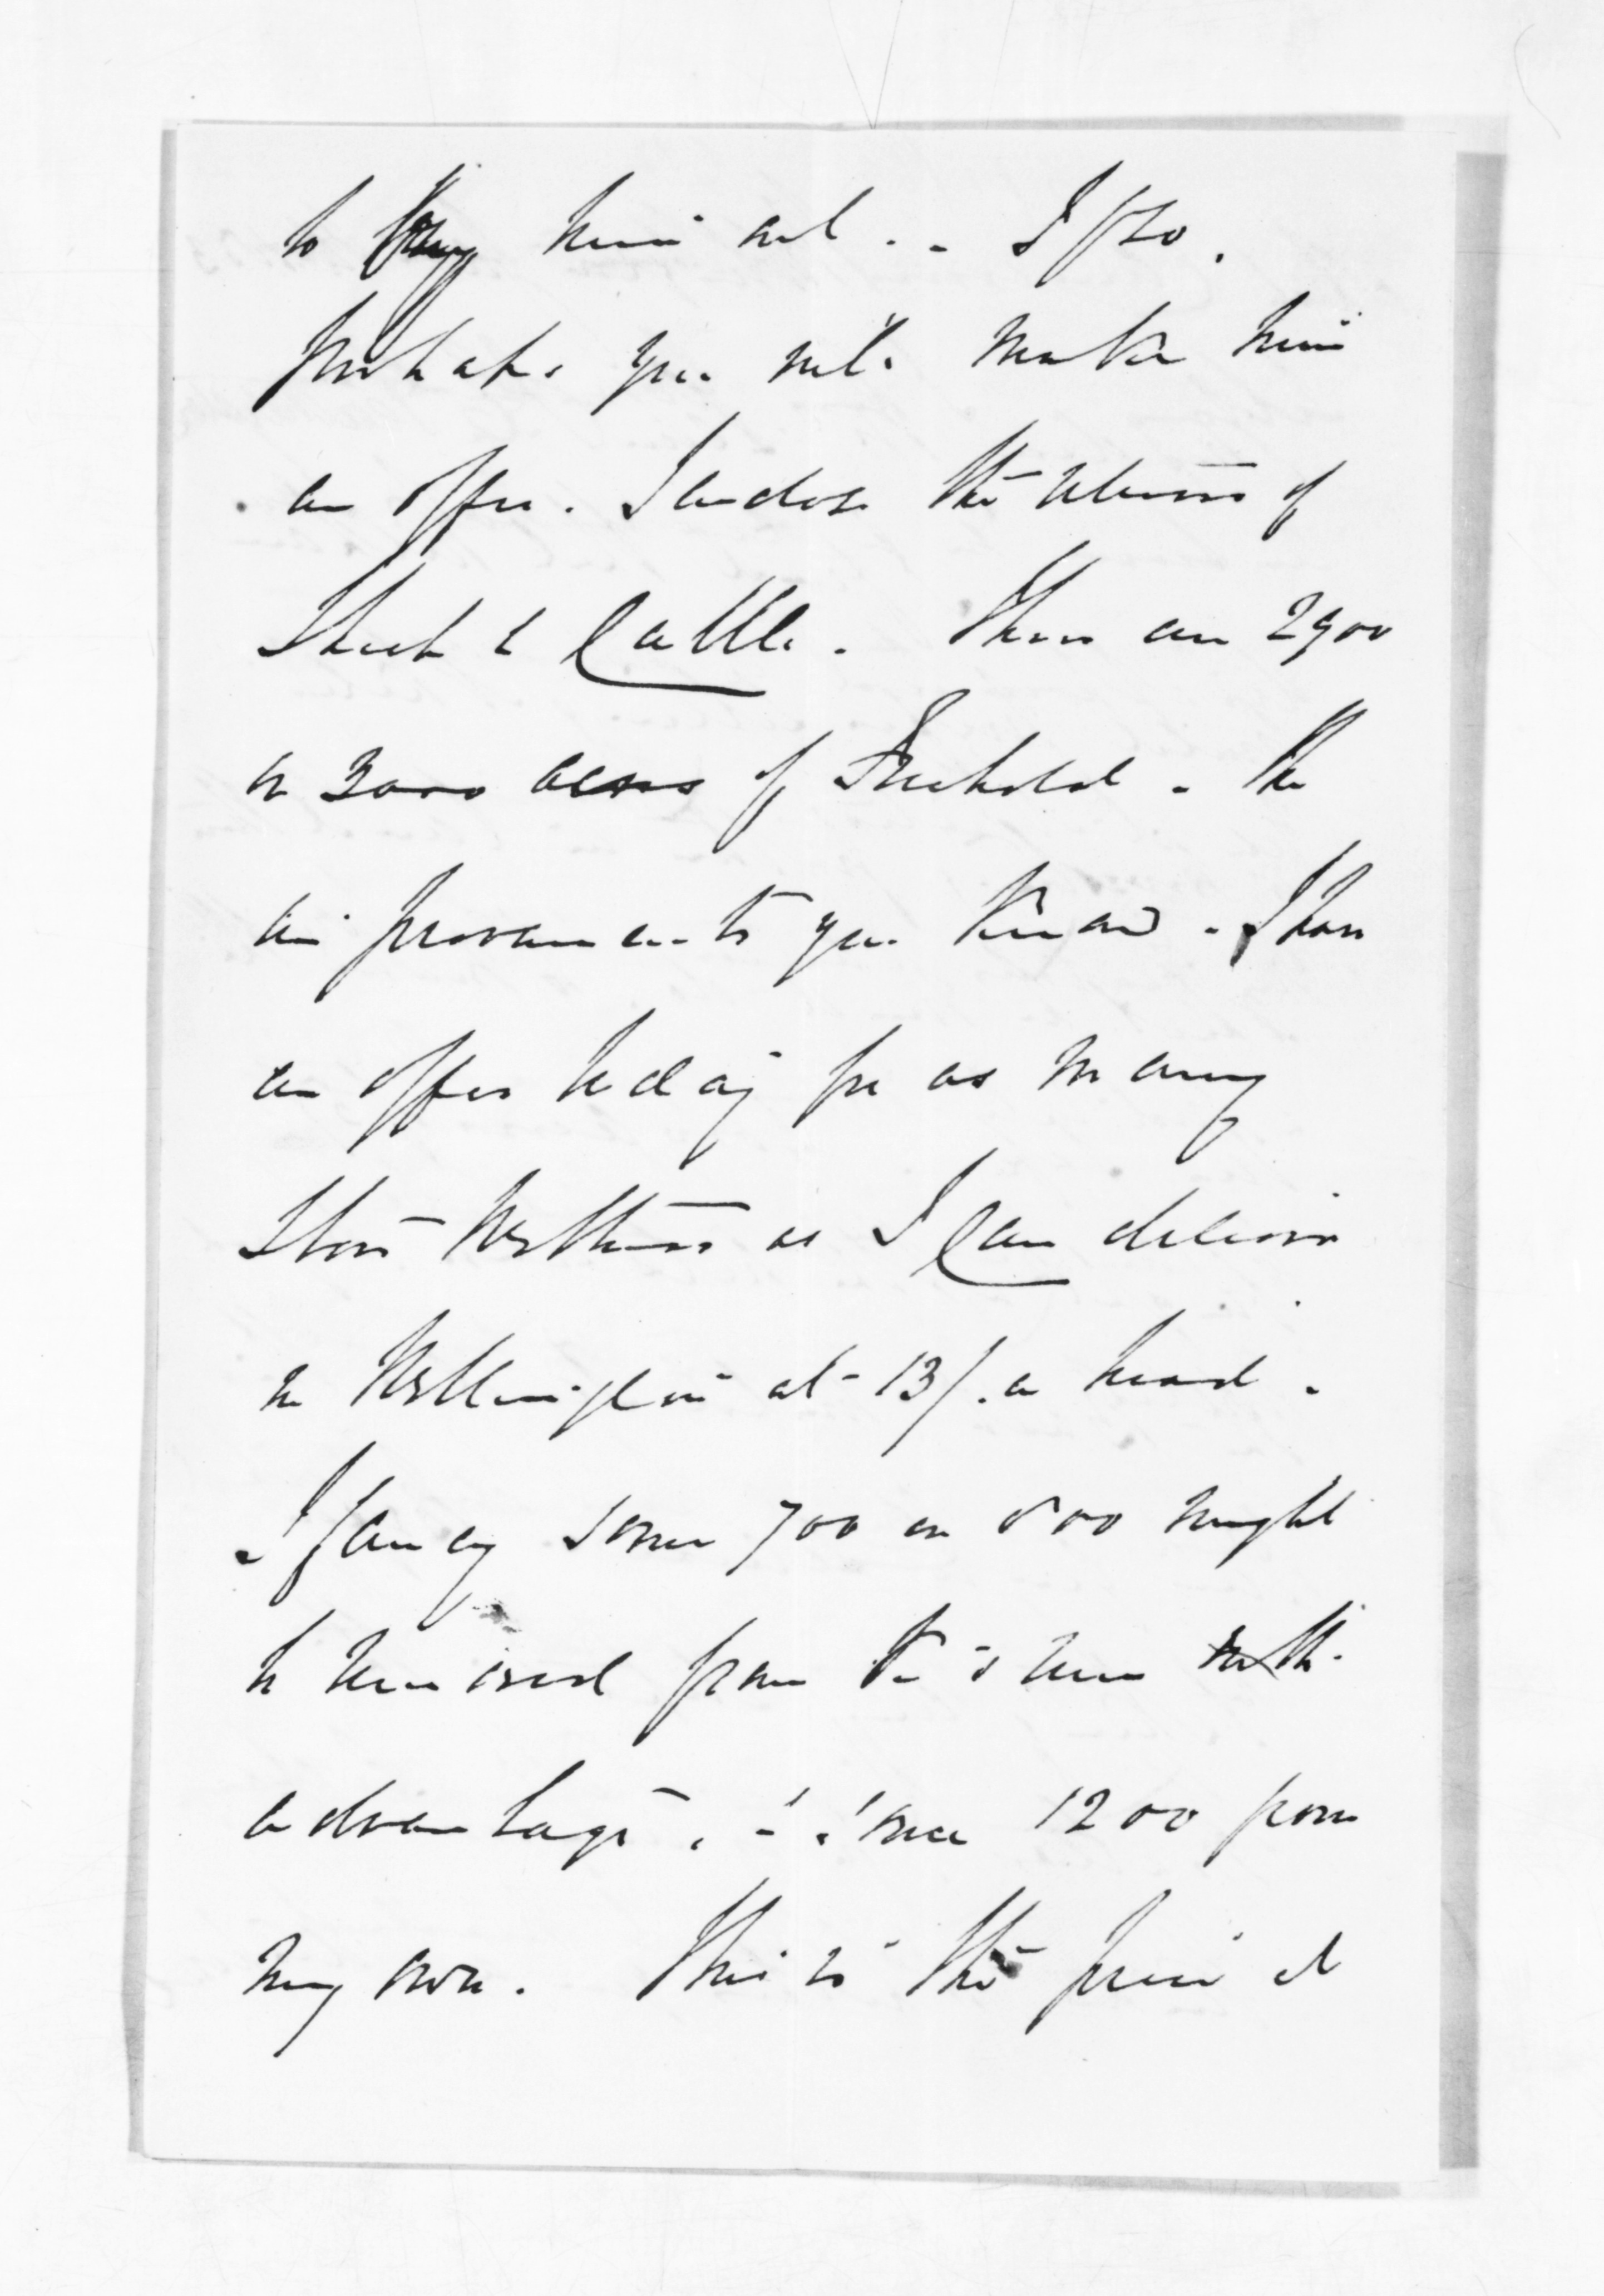 to buy him out. - If so,
perhaps you will make him
an offer. I enclose the returns of
Sheep & Cattle. There are 2900
or 3000 acres of Freehold. The
improvements you know. I have
an offer today for as many
store wethers as I can deliver
in Wellington at 13/. a head.
I fancy some 700 or 800 might
be removed from the run with
advantage, - & some 1200 from
my own. This is the price at